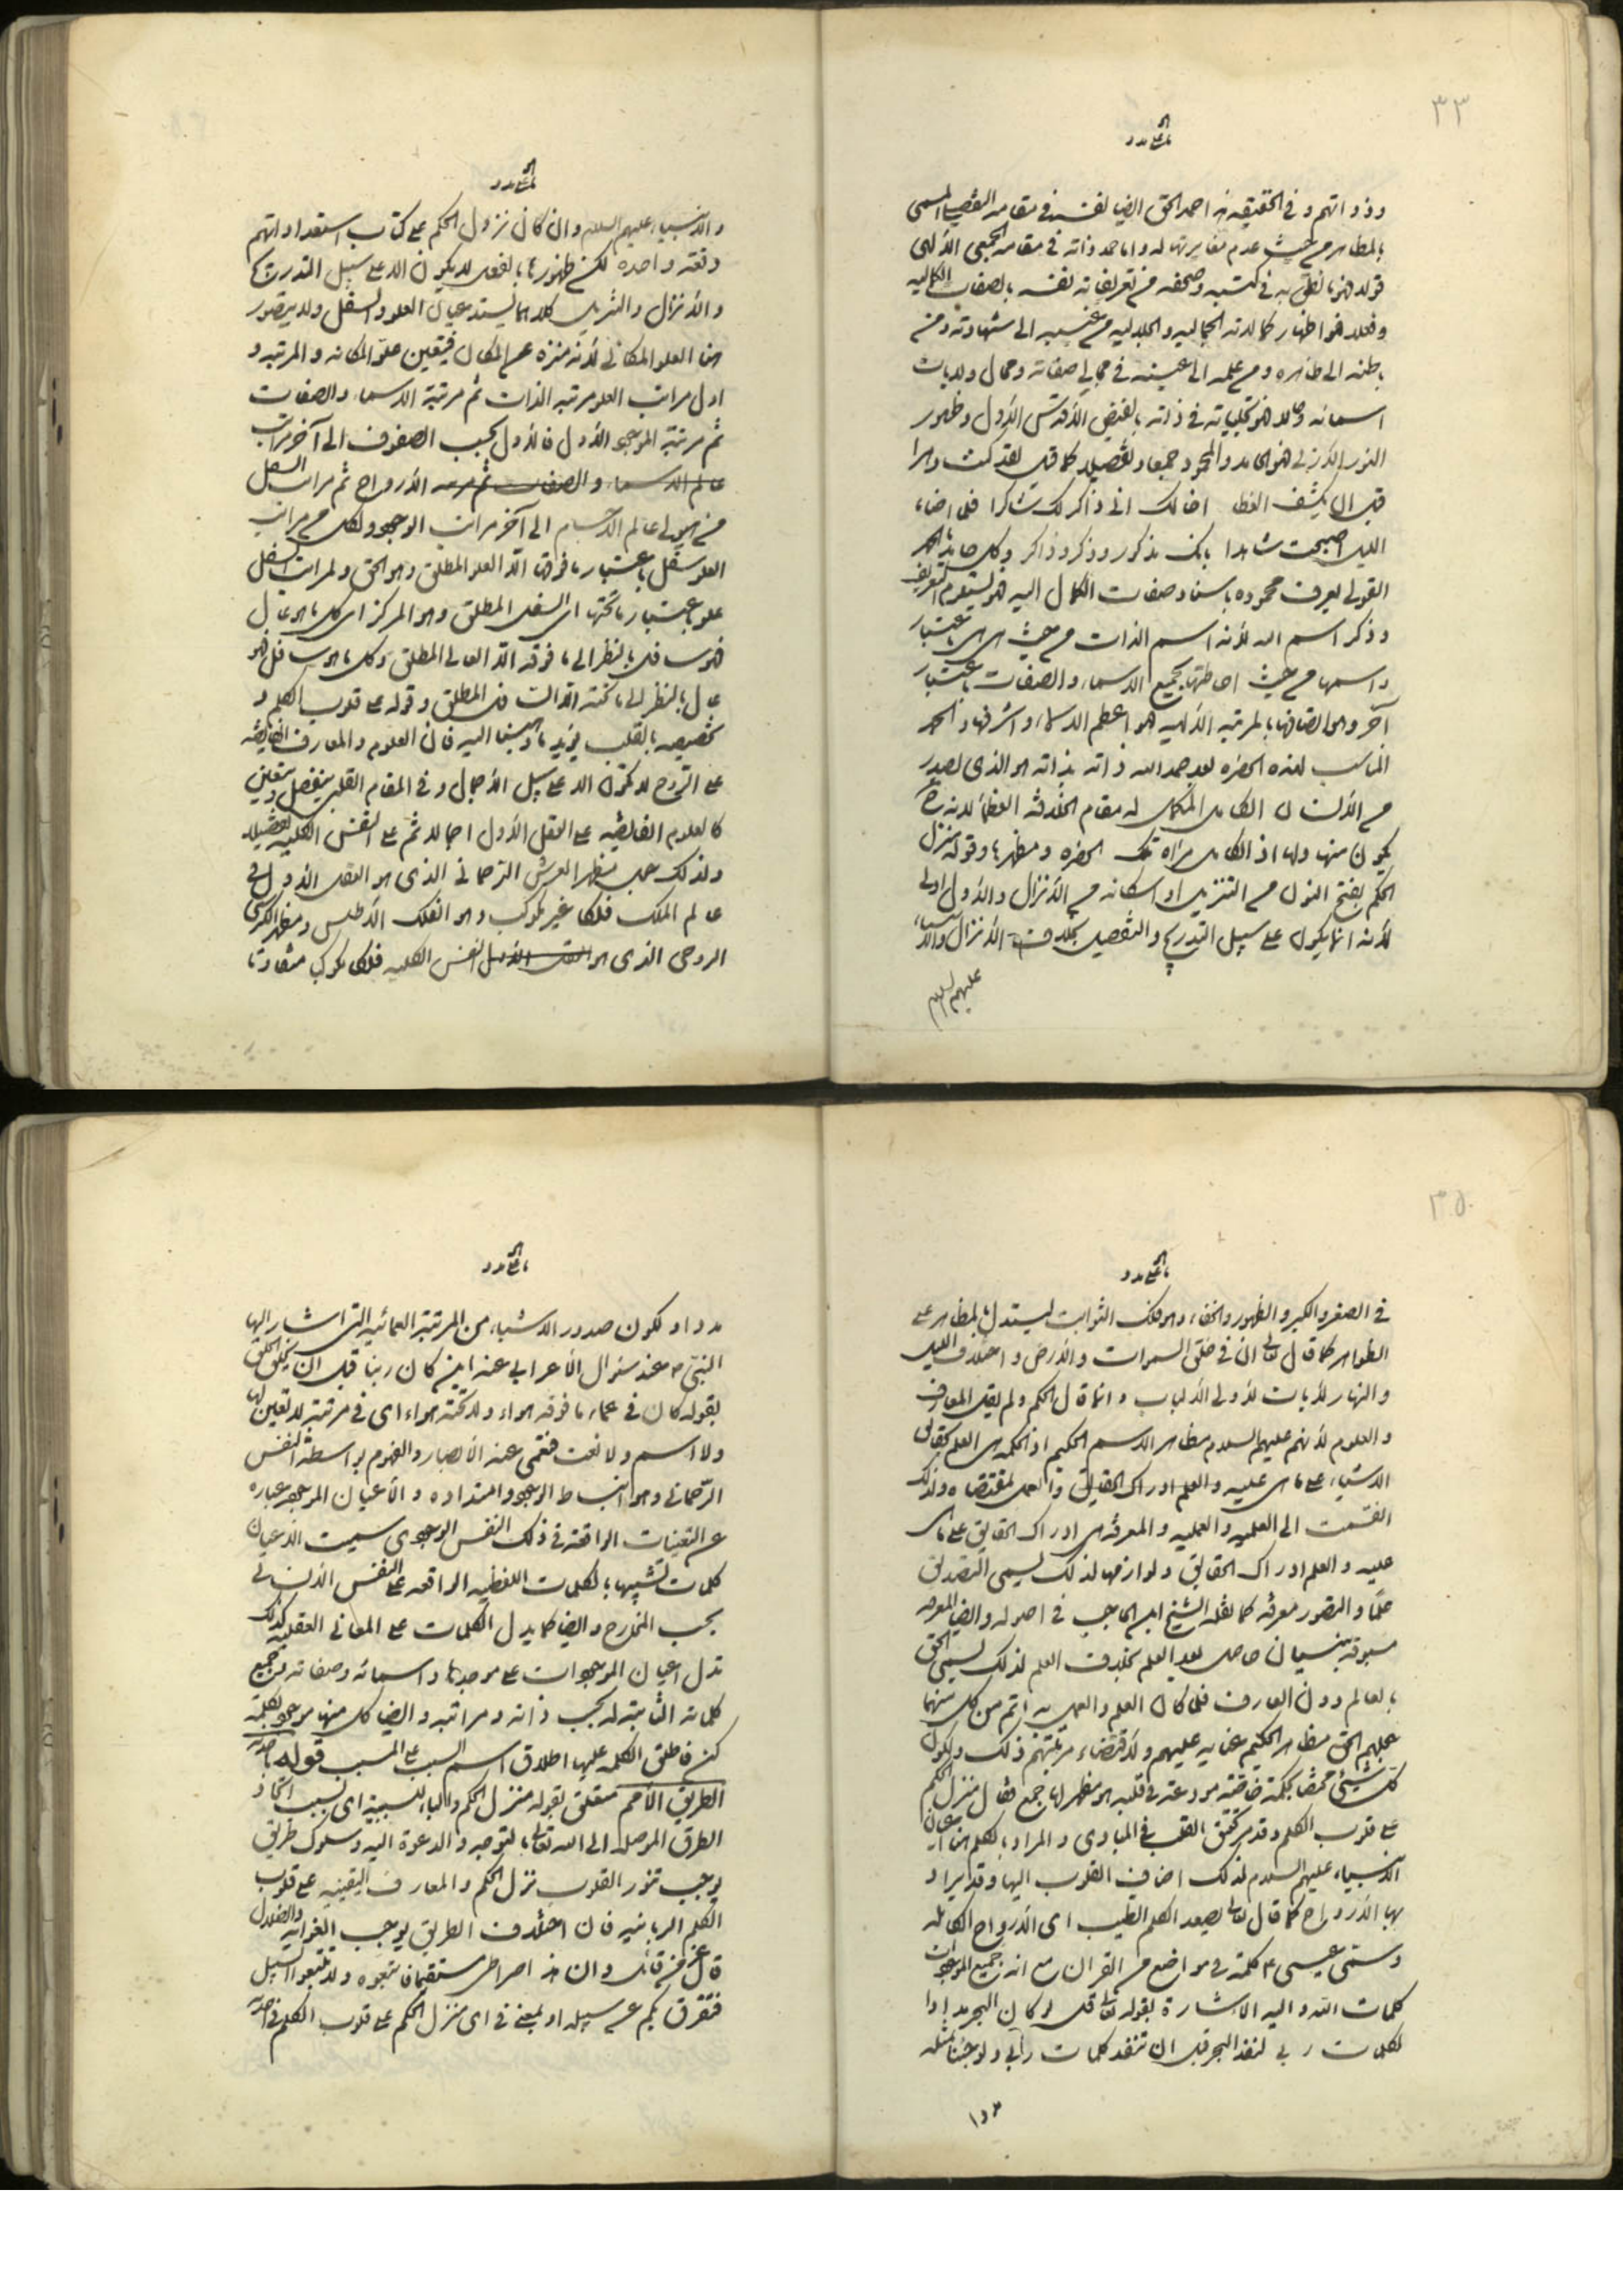 ٣٣
وذواتهم وفي الحقيقة هذا حمد الحق ايضا لنفسه في مقامه التفصيلي المسمى
بالمظاهر من حيث عدم مغايرتها له واما حمده ذاته في مقامه الجمعي الالهي
قولا فهو ما نطق به في كتبه وصحفه من تعريفاته نفسه بالصفات الكمالية
وفعلا فهو اظهار كمالاته الجمالية والجلالية من غيبه الى شهادته ومن
باطنه الى ظاهره ومن علمه الى عينه في مجالي صفاته ومحال ولايات
اسمائه وحالا فهو تجلياته في ذاته بالفيض الاقدس الاول وظهور
النور الازلي فهو الحامد والمحمود جمعا وتفصيلا كما قيل لقد كنت دهرا
قبل ان يكشف الغطا اخالك اني ذاكر لك شاكرا فلما اضاء
الليل اصبحت شاهدا بانك مذكور وذكر وذاكر وكل حامد بالحمد
القولي يعرف محموده باسناد صفات الكمال اليه فهو يستلزم التعريف
وذكر اسم الله لانه اسم الذات من حيث هي هي باعتبار
واسمها من حيث احاطتها بجميع الاسماء والصفات باعتبار
آخر وهو اتصافها بالمرتبة الالهية فهو اعظم الاسماء واشرفها والحمد
المناسب لهذه الحضرة بعد حمد الله ذاته بذاته هو الذي يصدر
من الانسان الكامل المكمل له مقام الخلافة العظمى لانه ح
يكون منها ولها اذ الكامل مراة تلك الحضرة ومظهرها وقوله منزل
الحكم بفتح النون من التنزيل او اسكانه من الانزال والاول اولى
لانه انما يكون على سبيل التدريج والتفصيل بخلاف الانزال والانبياء
عليهم السلام
والانبياء عليهم السلام وان كان نزول الحكم على كتاب استعداداتهم
دفعة واحدة لكن ظهورها بالفعل لا يكون الا على سبيل التدريج
والانزال والتنزيل كلاهما يستدعيان العلو والسفل ولا يتصور
هنا العلو المكاني لانه منزه عن المكان فتعين علو المكانة والمرتبة و
اول مراتب العلو مرتبة الذات ثم مرتبة الاسماء والصفات
ثم مرتبة الموجود الاول فالاول بحسب الصفوف الى آخر مراتب
عالم الارواح ثم مراتب السفل
من هيولى عالم الاجسام الى آخر مراتب الوجود ولكل من مراتب
العلو سفل باعتبار ما فوقها الا العلو المطلق وهو الحق ولمراتب السفل
علو باعتبار ما تحتها الا السفل المطلق وهو المركز اي كل ما هو عال
فهو سافل بالنظر الى ما فوقه الا العالي المطلق وكل ما هو سافل فهو
عال بالنظر الى ما تحته الا السافل المطلق وقوله على قلوب الكلم و
تخصيصه بالقلب يؤيد ما ذهبنا اليه فان العلوم والمعارف الفايضة
على الروح لا تكون الا على سبيل الاجمال وفي المقام القلبي يتفصل ويتعين
كالعلوم الفايضة على العقل الاول اجمالا ثم على النفس الكلية تفصيلا
ولذلك جعل مظهر العرش الرحماني الذي هو العقل الاول في
عالم الملك فلكا غير مكوكب وهو الفلك الاطلس ومظهر الكرسي
الروحي الذي هو النفس الكلية فلكا مكوكبا متفاوتا
٣٥
في الصغر والكبر والظهور والخفاء وهو فلك الثوابت ليستدل بالمظاهر على
الظواهر كما قال تعالى ان في خلق السموات والارض واختلاف الليل
والنهار لايات لاولي الالباب وانما قال الحكم ولم يقل المعارف
والعلوم لانهم عليهم السلام مظاهر الاسم الحكيم اذ الحكمة هي العلم بحقايق
الاشياء على ما هي عليه والعلم ادراك الحقايق والعمل بمقتضاه ولذلك
انقسمت الى العلمية والعملية والمعرفة هي ادراك الحقايق على ما هي
عليه والعلم ادراك الحقايق ولوازمها لذلك يسمى التصديق
علما والتصور معرفة كما نقله الشيخ ابن الحاجب في اصوله وايضا المعرفة
مسبوقة بنسيان حاصل بعد العلم بخلاف العلم لذلك يسمى الحق
بالعالم دون العارف فلما كان العلم والعمل به اتم من كل منهما
جعلهم الحق مظاهر الحكيم عناية عليهم ولاقتضاء مرتبتهم ذلك ولكون
كل شيئ مختصا بحكمة خاصة مودعة في قلبه هو مظهر لها جمع فقال منزل الحكم
على قلوب الكلم وقد مر تحقيق القلب في المبادي والمراد بالكلم هنا اعيان
الانبياء عليهم السلام لذلك اضاف القلوب اليها وقد يراد
بها الارواح كما قال تعالى اليه يصعد الكلم الطيب اي الارواح الكاملة
وسمى عيسى ع كلمة في مواضع من القران مع ان جميع الموجودات
كلمات الله واليه الاشارة بقوله تعالى قل لو كان البحر مدادا
لكلمات ربي لنفد البحر قبل ان تنفد كلمات ربي ولو جئنا بمثله
مددا
مددا ولكون صدور الاشياء من المرتبة العمائية التي اشار اليها
النبي ص عند سئوال الاعرابي عنه اين كان ربنا قبل ان يخلق الخلق
بقوله كان في عماء ما فوقه هواء ولا تحته هواء اي في مرتبة لا تعين لها
ولا اسم ولا نعت فتعمى عنه الابصار والفهوم بواسطة النفس
الرحماني وهو انبساط الوجود وامتداده والاعيان الموجودة عبارة
عن التعينات الواقعة في ذلك النفس الوجودي سميت الاعيان
كلمات تشبيها بالكلمات اللفظية الواقعة على النفس الانساني
بحسب المخارج وايضا كما يدل الكلمات على المعاني العقلية كذلك
تدل اعيان الموجودات على موجدها واسمائه وصفاته وجميع
كمالاته الثابتة له بحسب ذاته ومراتبه وايضا كل منها موجود بكلمة
كن فاطلق الكلمة عليها اطلاق اسم السبب على المسبب قوله باحدية
الطريق الامم متعلق بقوله منزل الحكم والباء للسببية اي بسبب اتحاد
الطرق الموصلة الى الله تعالى بالتوجه والدعوة اليه وسلوك طريق
يوجب تنور القلوب نزل الحكم والمعارف اليقينية على قلوب
الكلم الربانية فان اختلاف الطريق يوجب الغواية والضلال
قال عز من قائل وان هذا صراطي مستقيما فاتبعوه ولا تتبعوا السبل
فتفرق بكم عن سبيله او بمعنى في اي منزل الحكم على قلوب الكلم في احدية